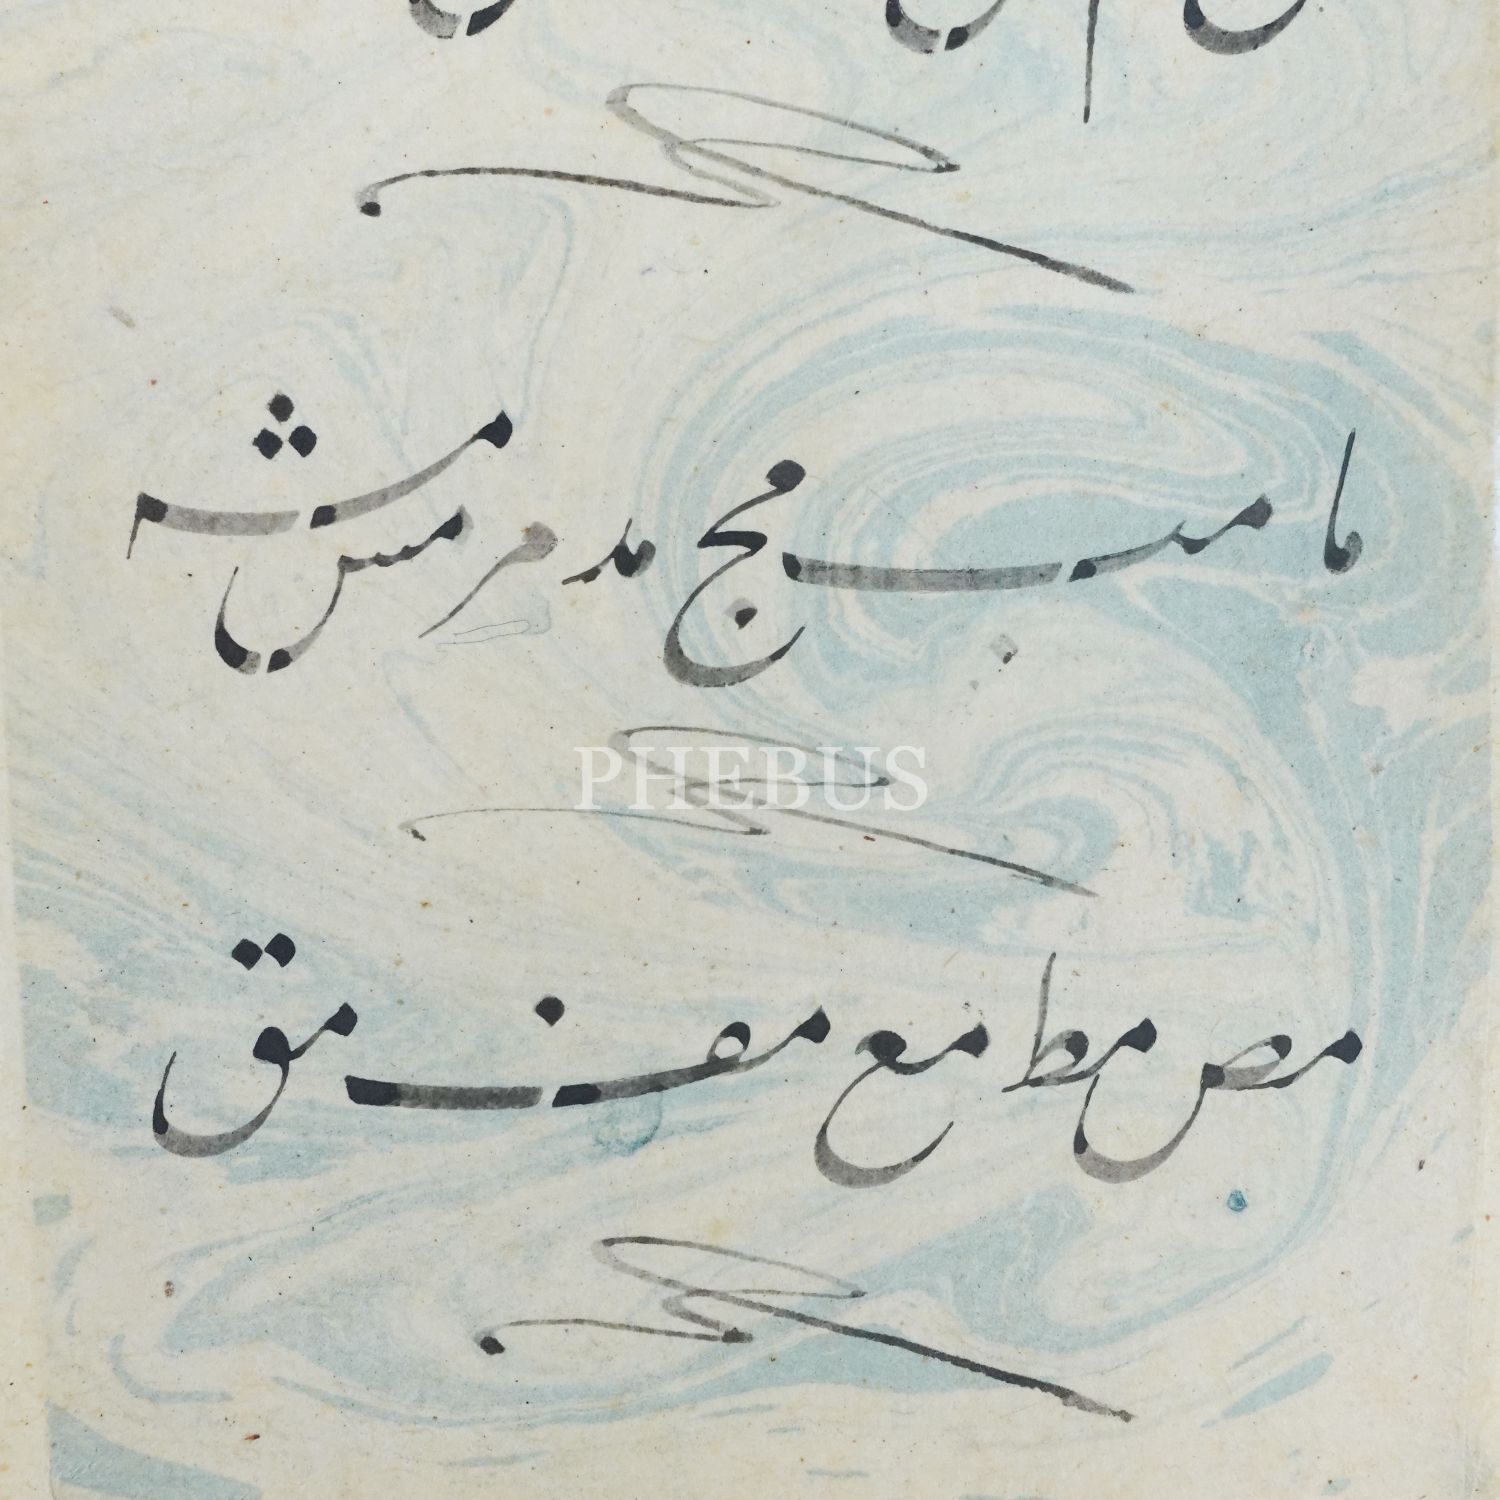 ما مب مج مد مر مس مشه
PHEBUS
مص مط مع مف مق